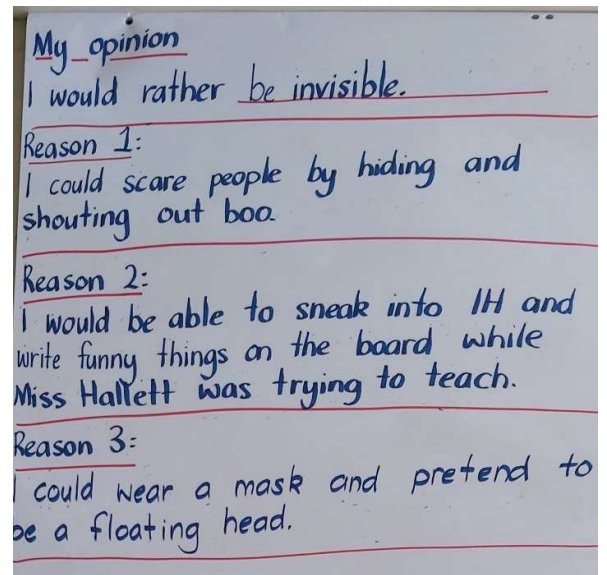 My opinion
I would rather be invisible.
Reason 1:
I could scare people by hiding and
shouting out boo.
Reason 2:
I would be able to sneak into 1H and
write funny things on the board while
Miss Hallett was trying to teach.
Reason 3:
I could wear a mask and pretend to
be a floating head.